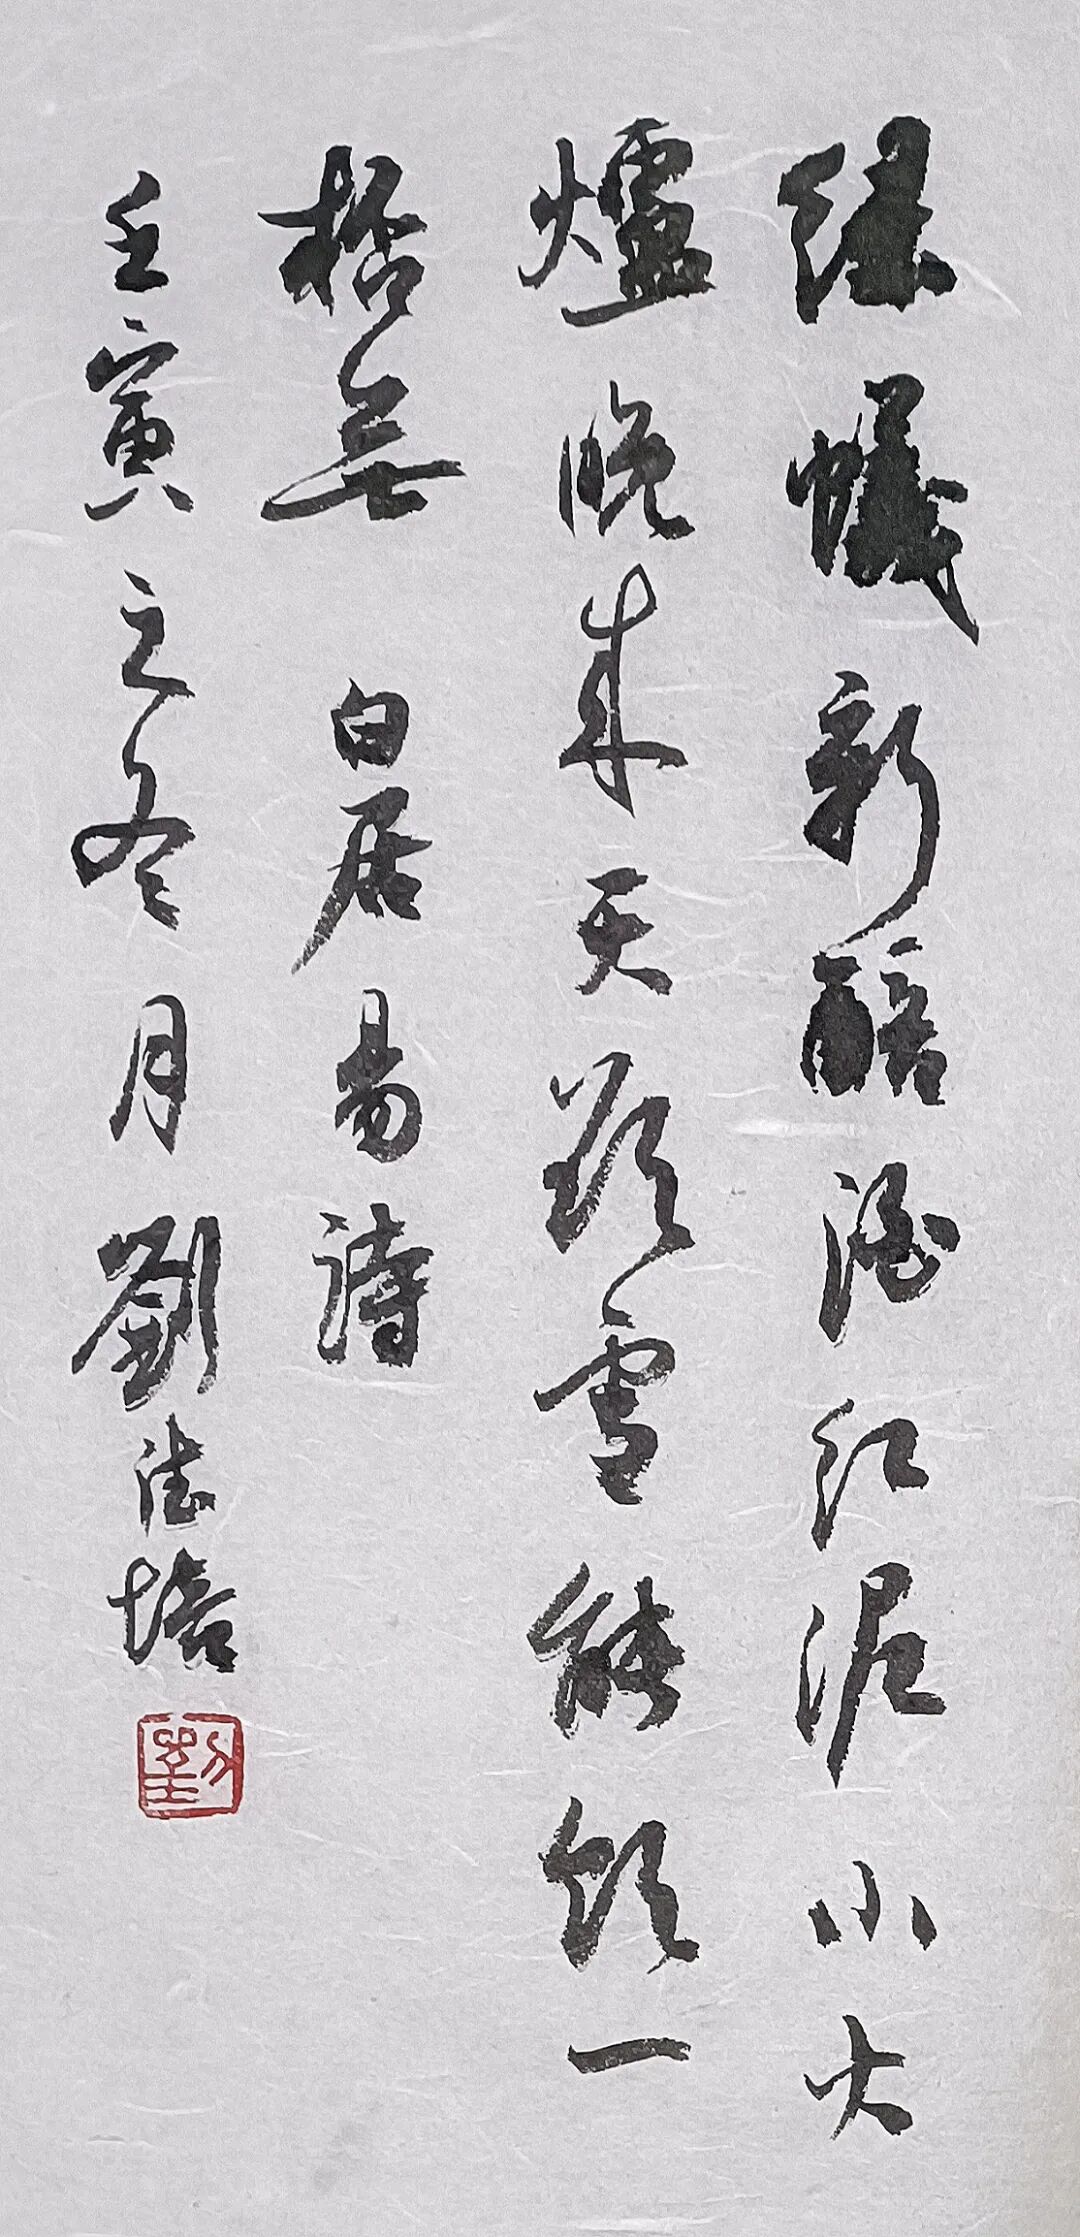 绿蟻新醅酒红泥小火
爐晚来天欲雪能飲一
桮無 白居易詩
壬寅之冬月劉法培
劉